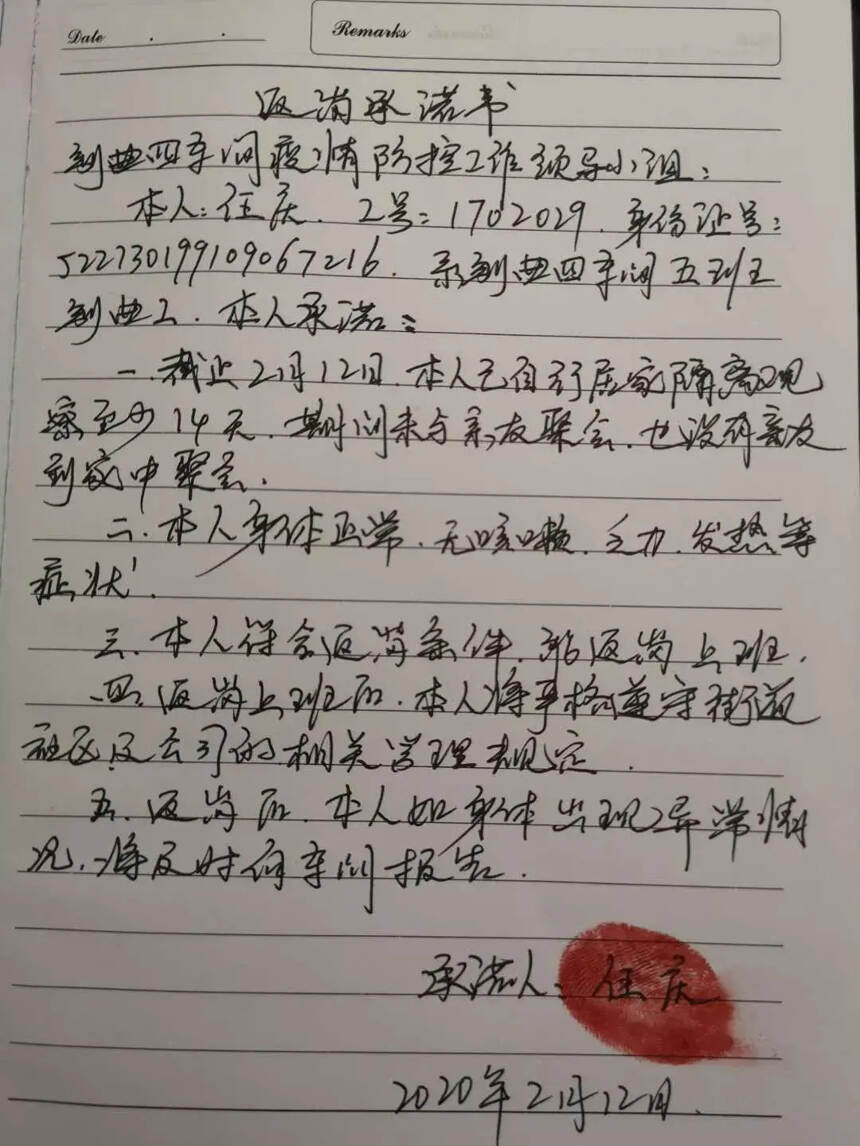 Date . .
Remarks
返岗承诺书
制曲四车间疫情防控工作领导小组：
本人：任庆．工号：1702029．身份证号：
522730199109067216．系制曲四车间五班班
制曲工．本人承诺：
一．截止2月12日．本人已自行居家隔离观
察至少14天．期间未与亲友聚会．也没有亲友
到家中聚会．
二．本人身体正常．无咳嗽．乏力．发热等
症状．
三．本人符合返岗条件．能返岗上班．
四．返岗上班后．本人将严格遵守街道
社区及公司的相关管理规定．
五．返岗后．本人如身体出现异常情
况．将及时向车间报告．
承诺人：任庆
2020年2月12日．